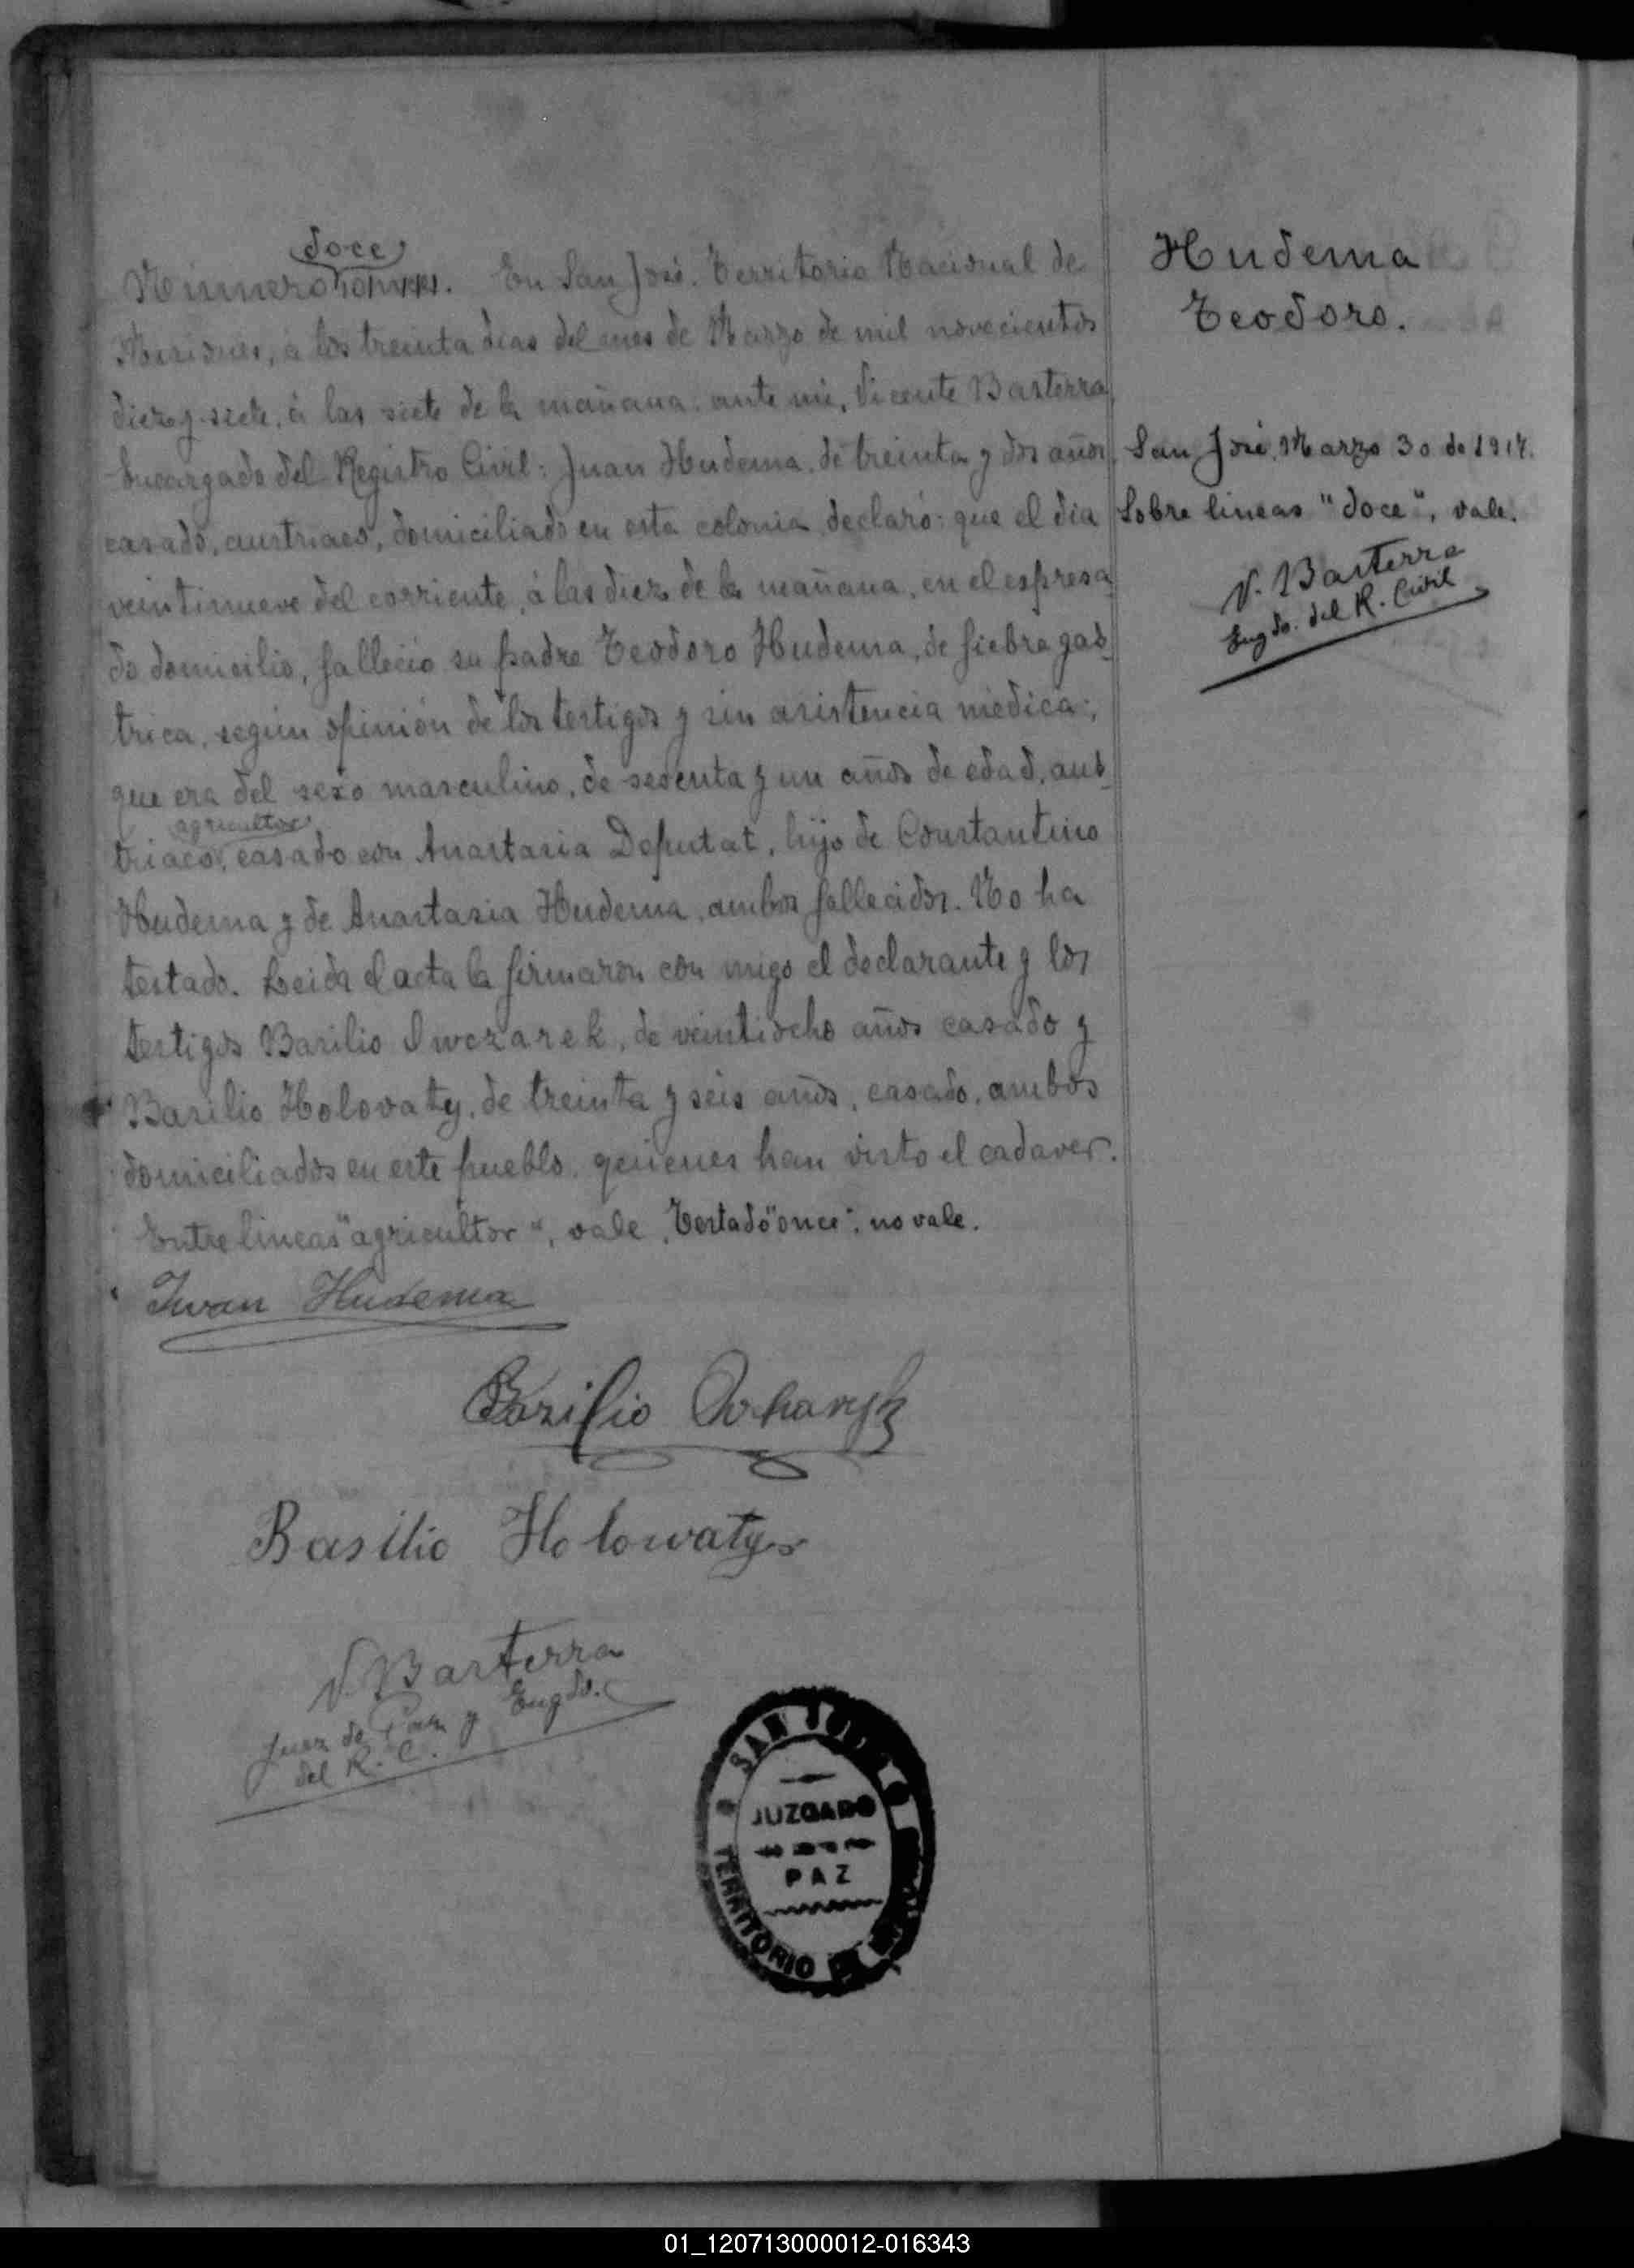 doce
Número once. En San José, Territorio Nacional de
Misiones, á los treinta dias del mes de Marzo de mil novecientos
diez y siete, á las siete de la mañana: ante mi, Vicente Basterra,
Encargado del Registro Civil: Juan Hudema, de treinta y dos años,
casado, austriaco, domiciliado en esta colonia, declaró: que el dia
veintinueve del corriente, á las diez de la mañana, en el espresa_
do domicilio, falleció su padre Teodoro Hudema, de fiebre gas_
trica, según opinión de los testigos y sin asistencia médica;
que era del sexo masculino, de sesenta y un años de edad, aus_
agricultor
triaco, casado con Anastasia Deputat, hijo de Constantino
Hudema y de Anastasia Hudema, ambos fallecidos. No ha
testado. Leida el acta la firmaron con migo el declarante y los
testigos Basilio Owczarek, de veintiocho años casado y
Basilio Holovaty, de treinta y seis años, casado, ambos
domiciliados en este pueblo, quienes han visto el cadaver.
Entre lineas "agricultor", vale, Testado "once", no vale.
Iwan Hudema
Bazilio
Basilio Holowatys
V. Basterra
Juez de Paz y Engdo.
del R. C.
SAN JOSÉ
JUZGADO
DE
PAZ
TERRITORIO DE
Hudema
Teodoro.
San José, Marzo 30 de 1917.
Sobre lineas "doce", vale.
V. Basterra
Engdo. del R. Civil
01_120713000012-016343